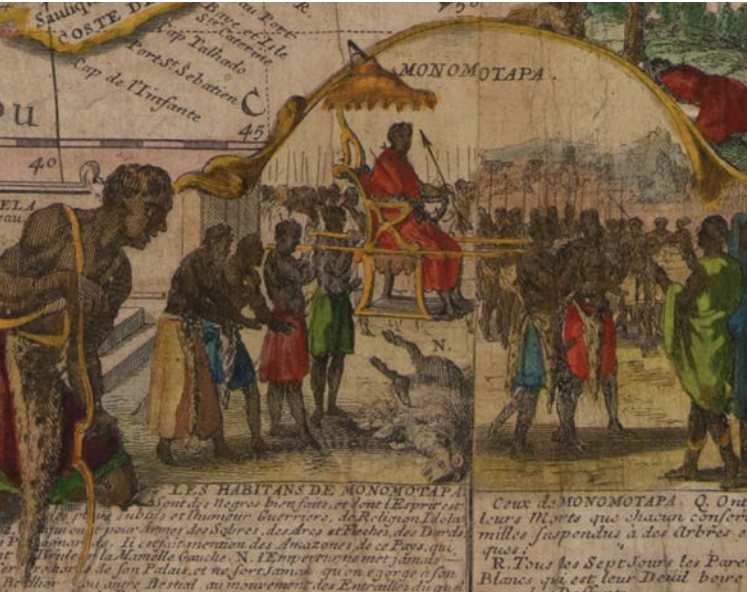 Saulique
COSTE DE
au Pont
R.
Baye et Isle
Ste Caterine
Cap Talhado
Port St. Sebatien
Cap de l'Imfante
C
ou
45
40
ELA
eau
MONOMOTAPA.
N.
LES HABITANS DE MONOMOTAPA
Sont des Negres bien faits, et dont l'Esprit est
subtils et l'humeur Guerriere, de Religion Idola
ont pour Armes des Sabres, des Arcs et Fleches, des Dards
Il est fait mention des Amazones de ce Pays, qui
la Mamelle Gauche. N. l'Empereur ne met jamais
de son Palais, et ne sort Jamais qu'on egorge a son
ou autre Bestial, au mouvement des Entrailles du quel
Ceux de MONOMOTAPA. Q. Ont
leurs Morts que chacun conser
milles suspendus à des Arbres e
ques;
R. Tous les Sept Jours les Pare
Blancs qui est leur Deuil boire